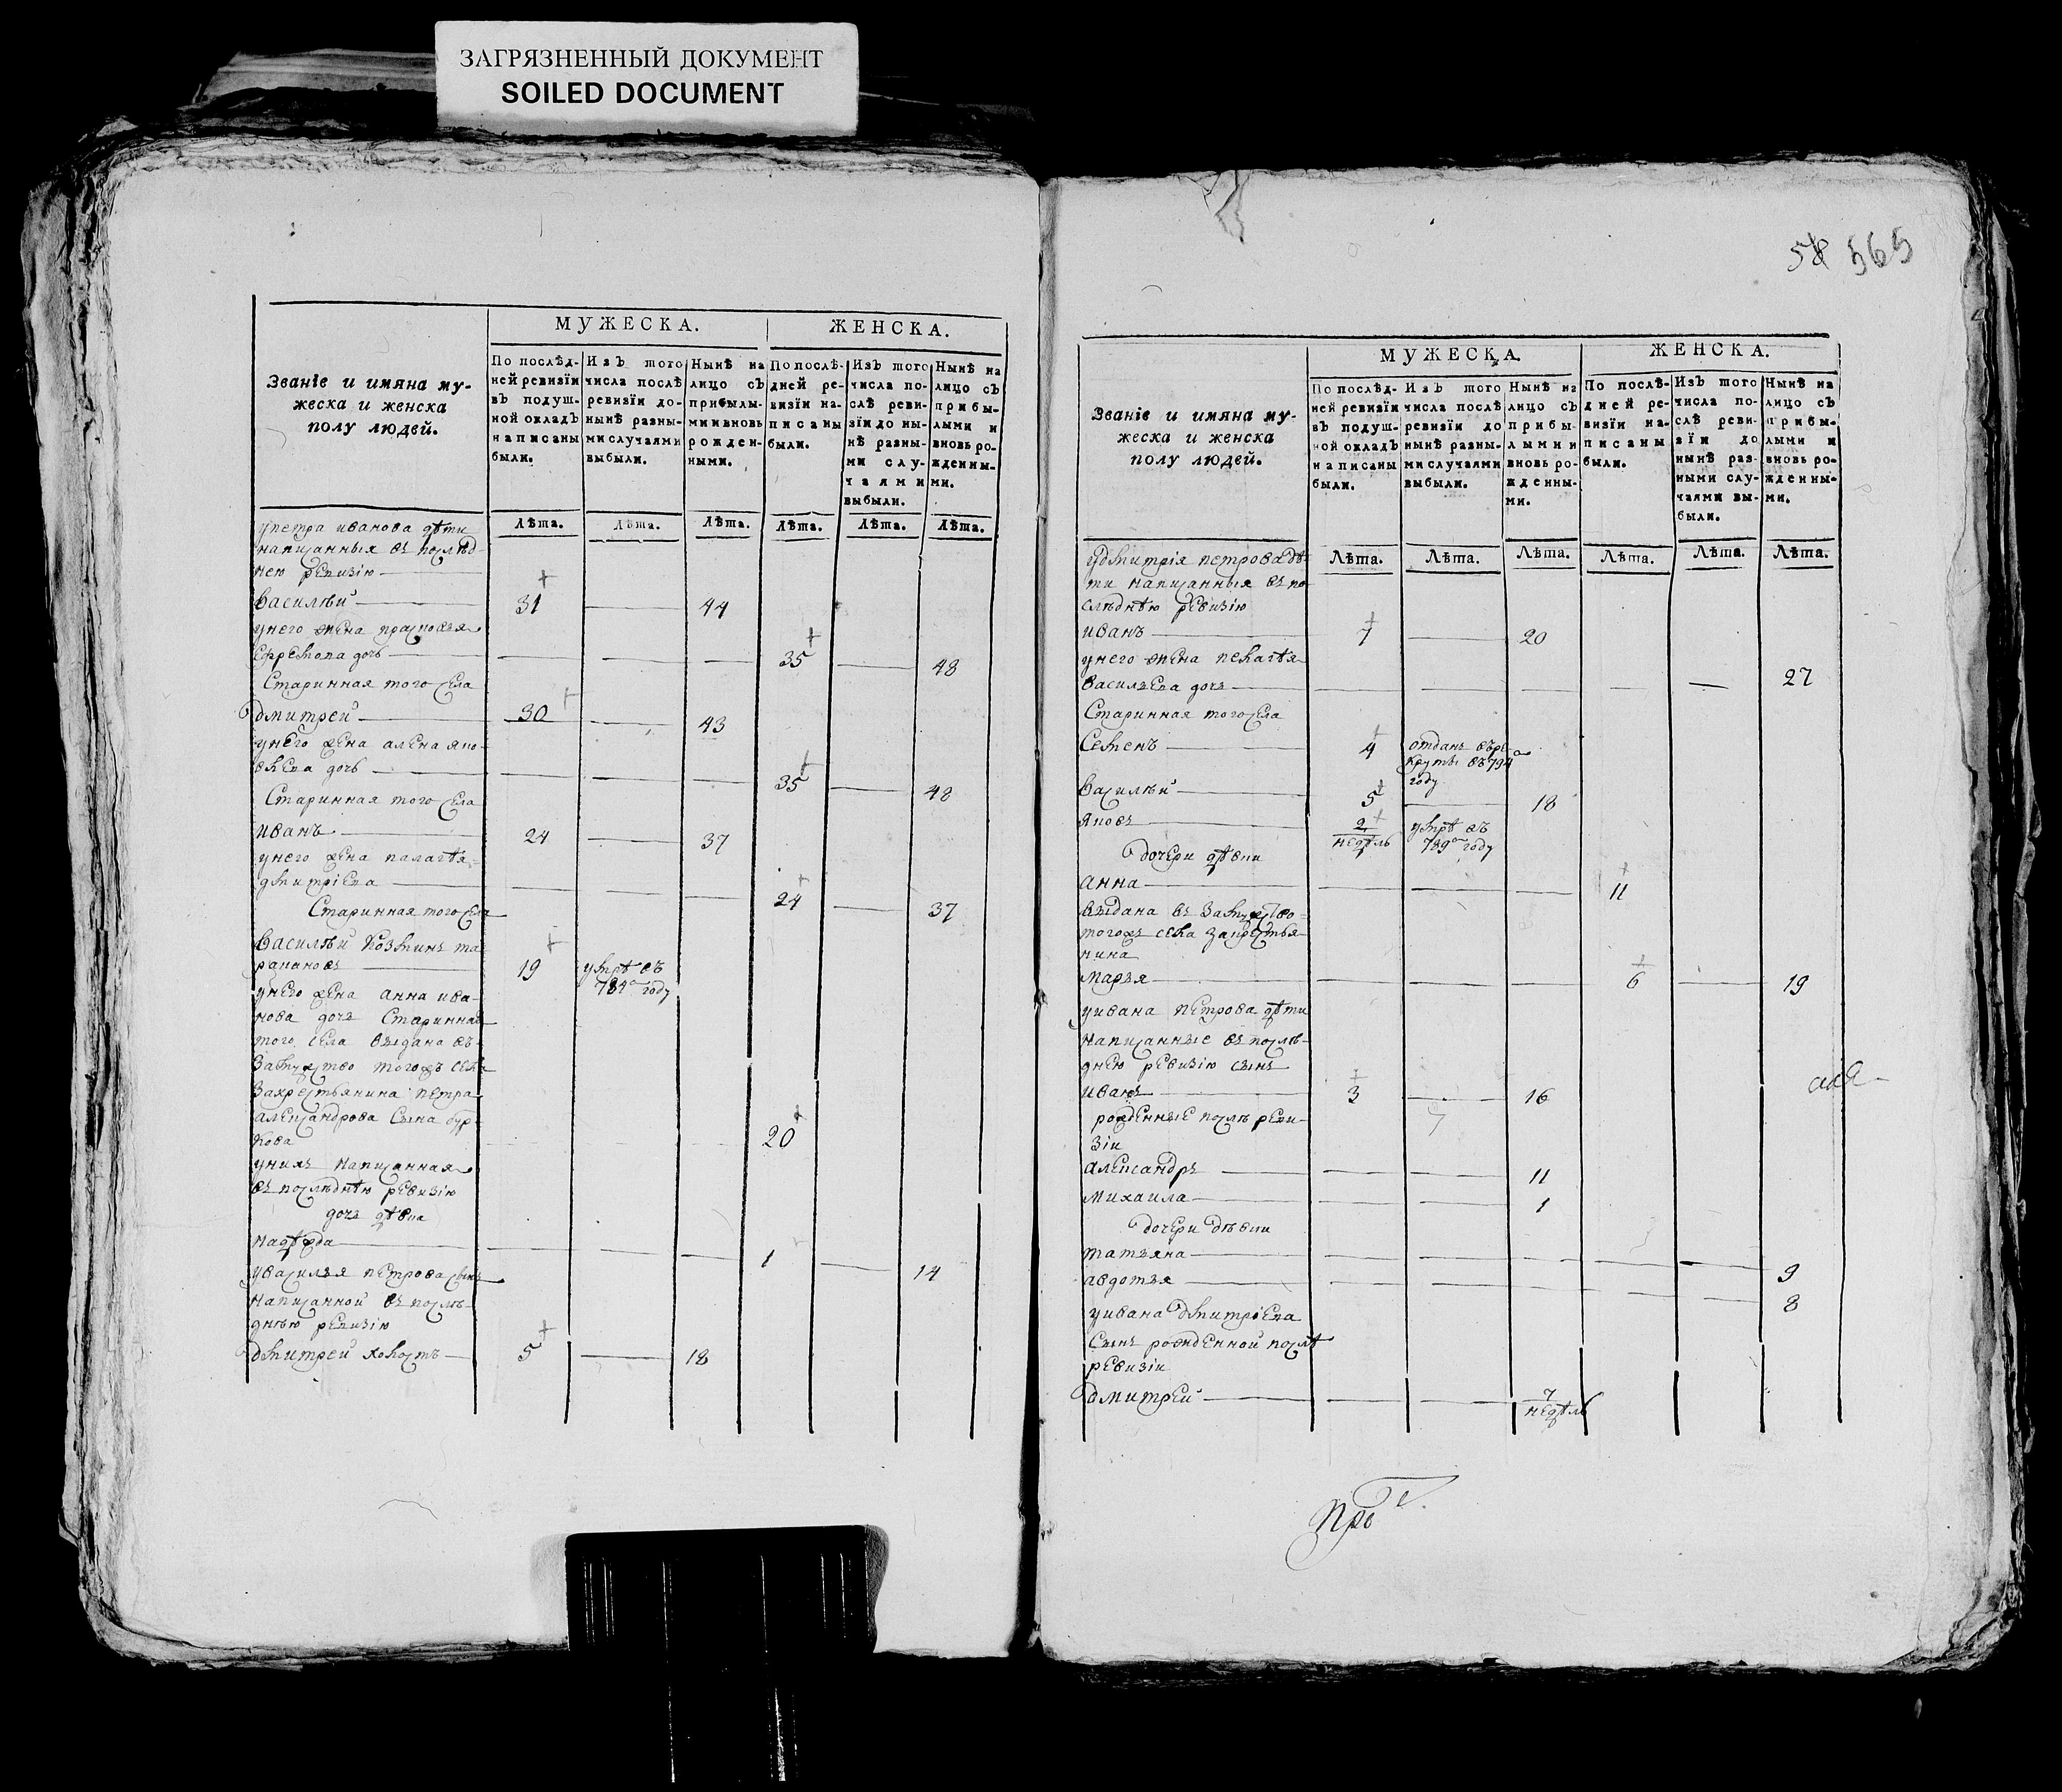 ЗАГРЯЗНЕННЫЙ ДОКУМЕНТ
SOILED DOCUMENT
МУЖЕСКА. ЖЕНСКА.
Званіе и имяна му-
жеска и женска
полу людей.
По послѣд-
ней ревизіи
въ подуш-
ной окладъ
написаны
были.
Изъ того
числа послѣ
ревизіи до-
нынѣ разны-
ми случаями
выбыли.
Нынѣ на
лицо съ
прибылы-
ми и вновь
рожден-
ными.
По послѣ-
дней ре-
визіи на-
писаны
были.
Изъ того
числа по-
слѣ реви-
зіи до ны-
нѣ разны-
ми слу-
чаями
выбыли.
Нынѣ на
лицо съ
прибы-
лыми и
вновь ро-
жденны-
ми.
Лѣта. Лѣта. Лѣта. Лѣта. Лѣта. Лѣта.
упетра иванова дѣти
написанныя въ послѣд-
нею ревизію
василѣй 31 44
унего жена прасковья
ефремова дочь 35 48
Старинная того села
дмитрей 30 43
унего жена алена яко-
влева дочь 35 48
Старинная того села
иванъ 24 37
унего жена палагѣя
дмитріева 24 37
Старинная того села
василѣй козминъ та-
рапановъ 19 умрѣ въ
784 году
унего жена анна ива-
нова дочь Старинная
того села выдана въ
замужство тогожъ села
закрестьянина петра
александрова сына бур-
кова 20
унихъ написанная
въ послѣднѣю ревизію
дочь дѣвка
надѣжда 1 14
увасилья петрова сынъ
написанной въ послѣ-
днѣю ревизію
дмитрей холостъ 5 18
58 565
МУЖЕСКА. ЖЕНСКА.
Званіе и имяна му-
жеска и женска
полу людей.
По послѣд-
ней ревизіи
въ подуш-
ной окладъ
написаны
были.
Изъ того
числа послѣ
ревизіи до
нынѣ разны-
ми случаями
выбыли.
Нынѣ на
лицо съ
прибы-
лыми и
вновь ро-
жденны-
ми.
По послѣ-
дней ре-
визіи на-
писаны
были.
Изъ того
числа по-
слѣ реви-
зіи до
нынѣ раз-
ными слу-
чаями вы-
были.
Нынѣ на
лицо съ
прибы-
лыми и
вновь ро-
жденны-
ми.
Лѣта. Лѣта. Лѣта. Лѣта. Лѣта. Лѣта.
удмитрія петрова дѣ-
ти написанныя въ по-
слѣднѣю ревизію
иванъ 7 20
унего жена пелагѣя
васильева дочь 27
Старинная того села
Семенъ 4 отданъ въре-
круты въ794
году
василѣй 5 18
яковъ 2 недѣль умрѣ въ
789 году
дочери дѣвки
анна 11
выдана въ замужство
тогожъ села закрестья-
нина
марья 6 19
уивана петрова дѣти
написанные въ послѣ-
днею ревизію сынъ
иванъ 3 16
рожденные послѣ реви-
зіи
александръ 11
михаила 1
дочери дѣвки
татьяна 9
авдотья 8
уивана дмитріева
сынъ рожденной послѣ
ревизіи
дмитрей 7 недѣль